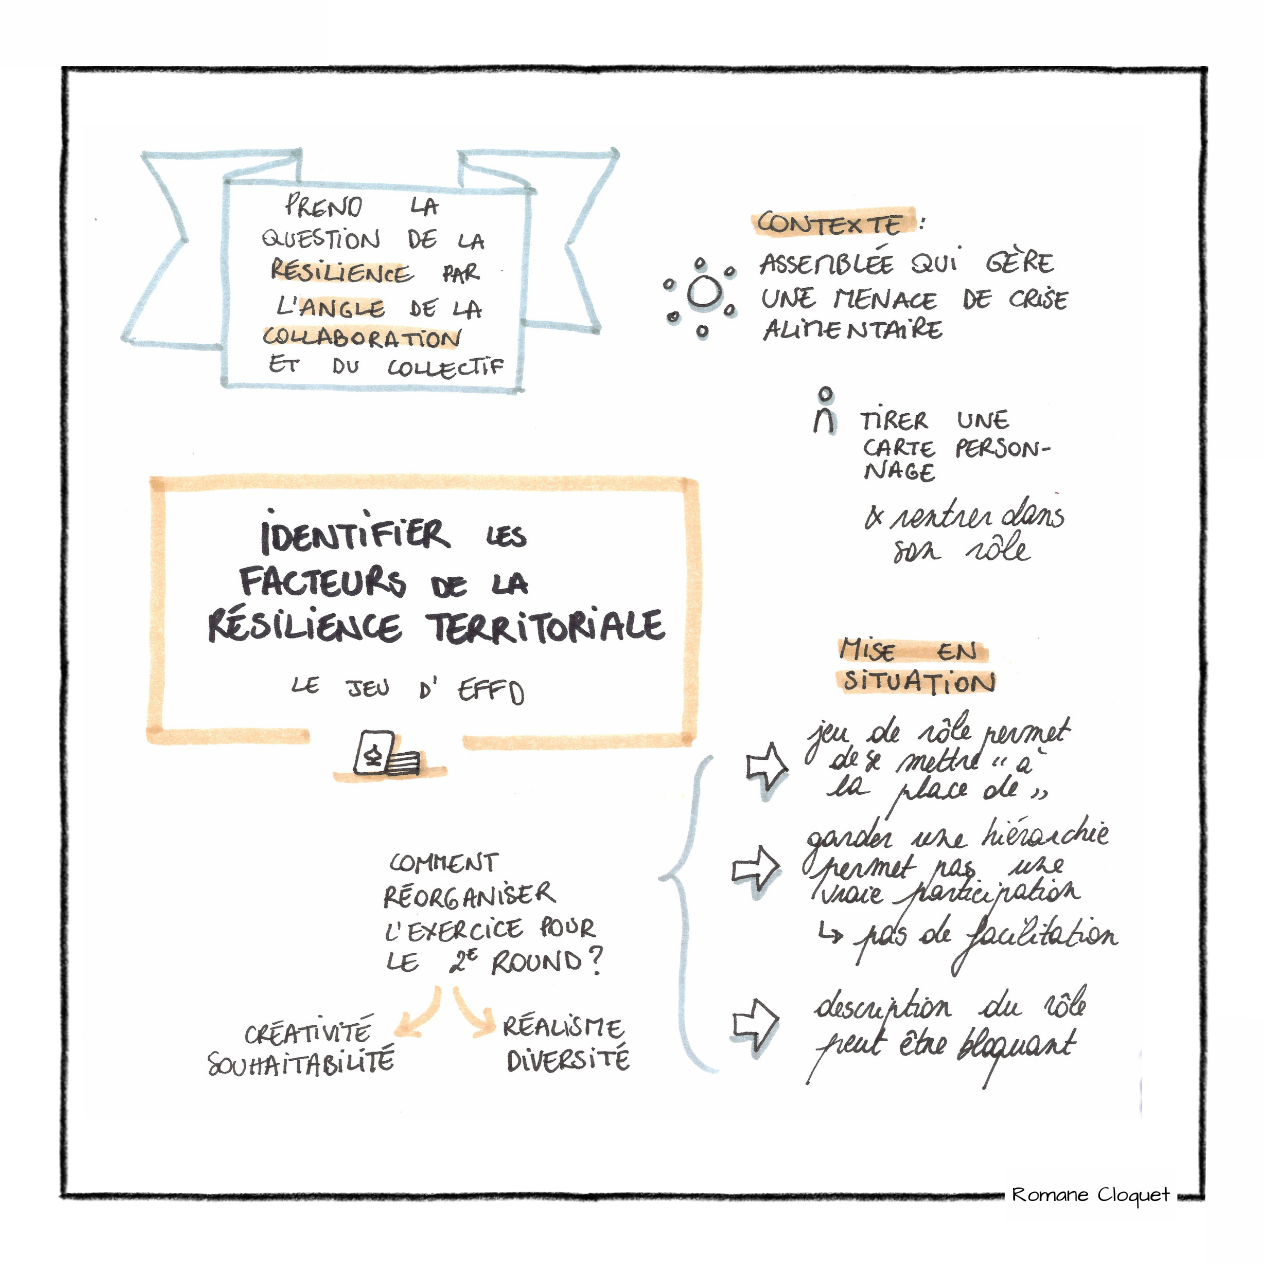 PREND LA
QUESTION DE LA
RÉSILIENCE PAR
L'ANGLE DE LA
COLLABORATION
ET DU COLLECTIF
CONTEXTE :
ASSEMBLÉE QUI GÈRE
UNE MENACE DE CRISE
ALIMENTAIRE
TIRER UNE
CARTE PERSON-
NAGE
& rentrer dans
son rôle
IDENTIFIER LES
FACTEURS DE LA
RÉSILIENCE TERRITORIALE
LE JEU D'EFFO
MISE EN
SITUATION
jeu de rôle permet
de se mettre "à
la place de"
garder une hiérarchie
permet pas une
vraie participation
↳ pas de facilitation
description du rôle
peut être bloquant
COMMENT
RÉORGANISER
L'EXERCICE POUR
LE 2E ROUND ?
CRÉATIVITÉ
SOUHAITABILITÉ
RÉALISME
DIVERSITÉ
Romane Cloquet